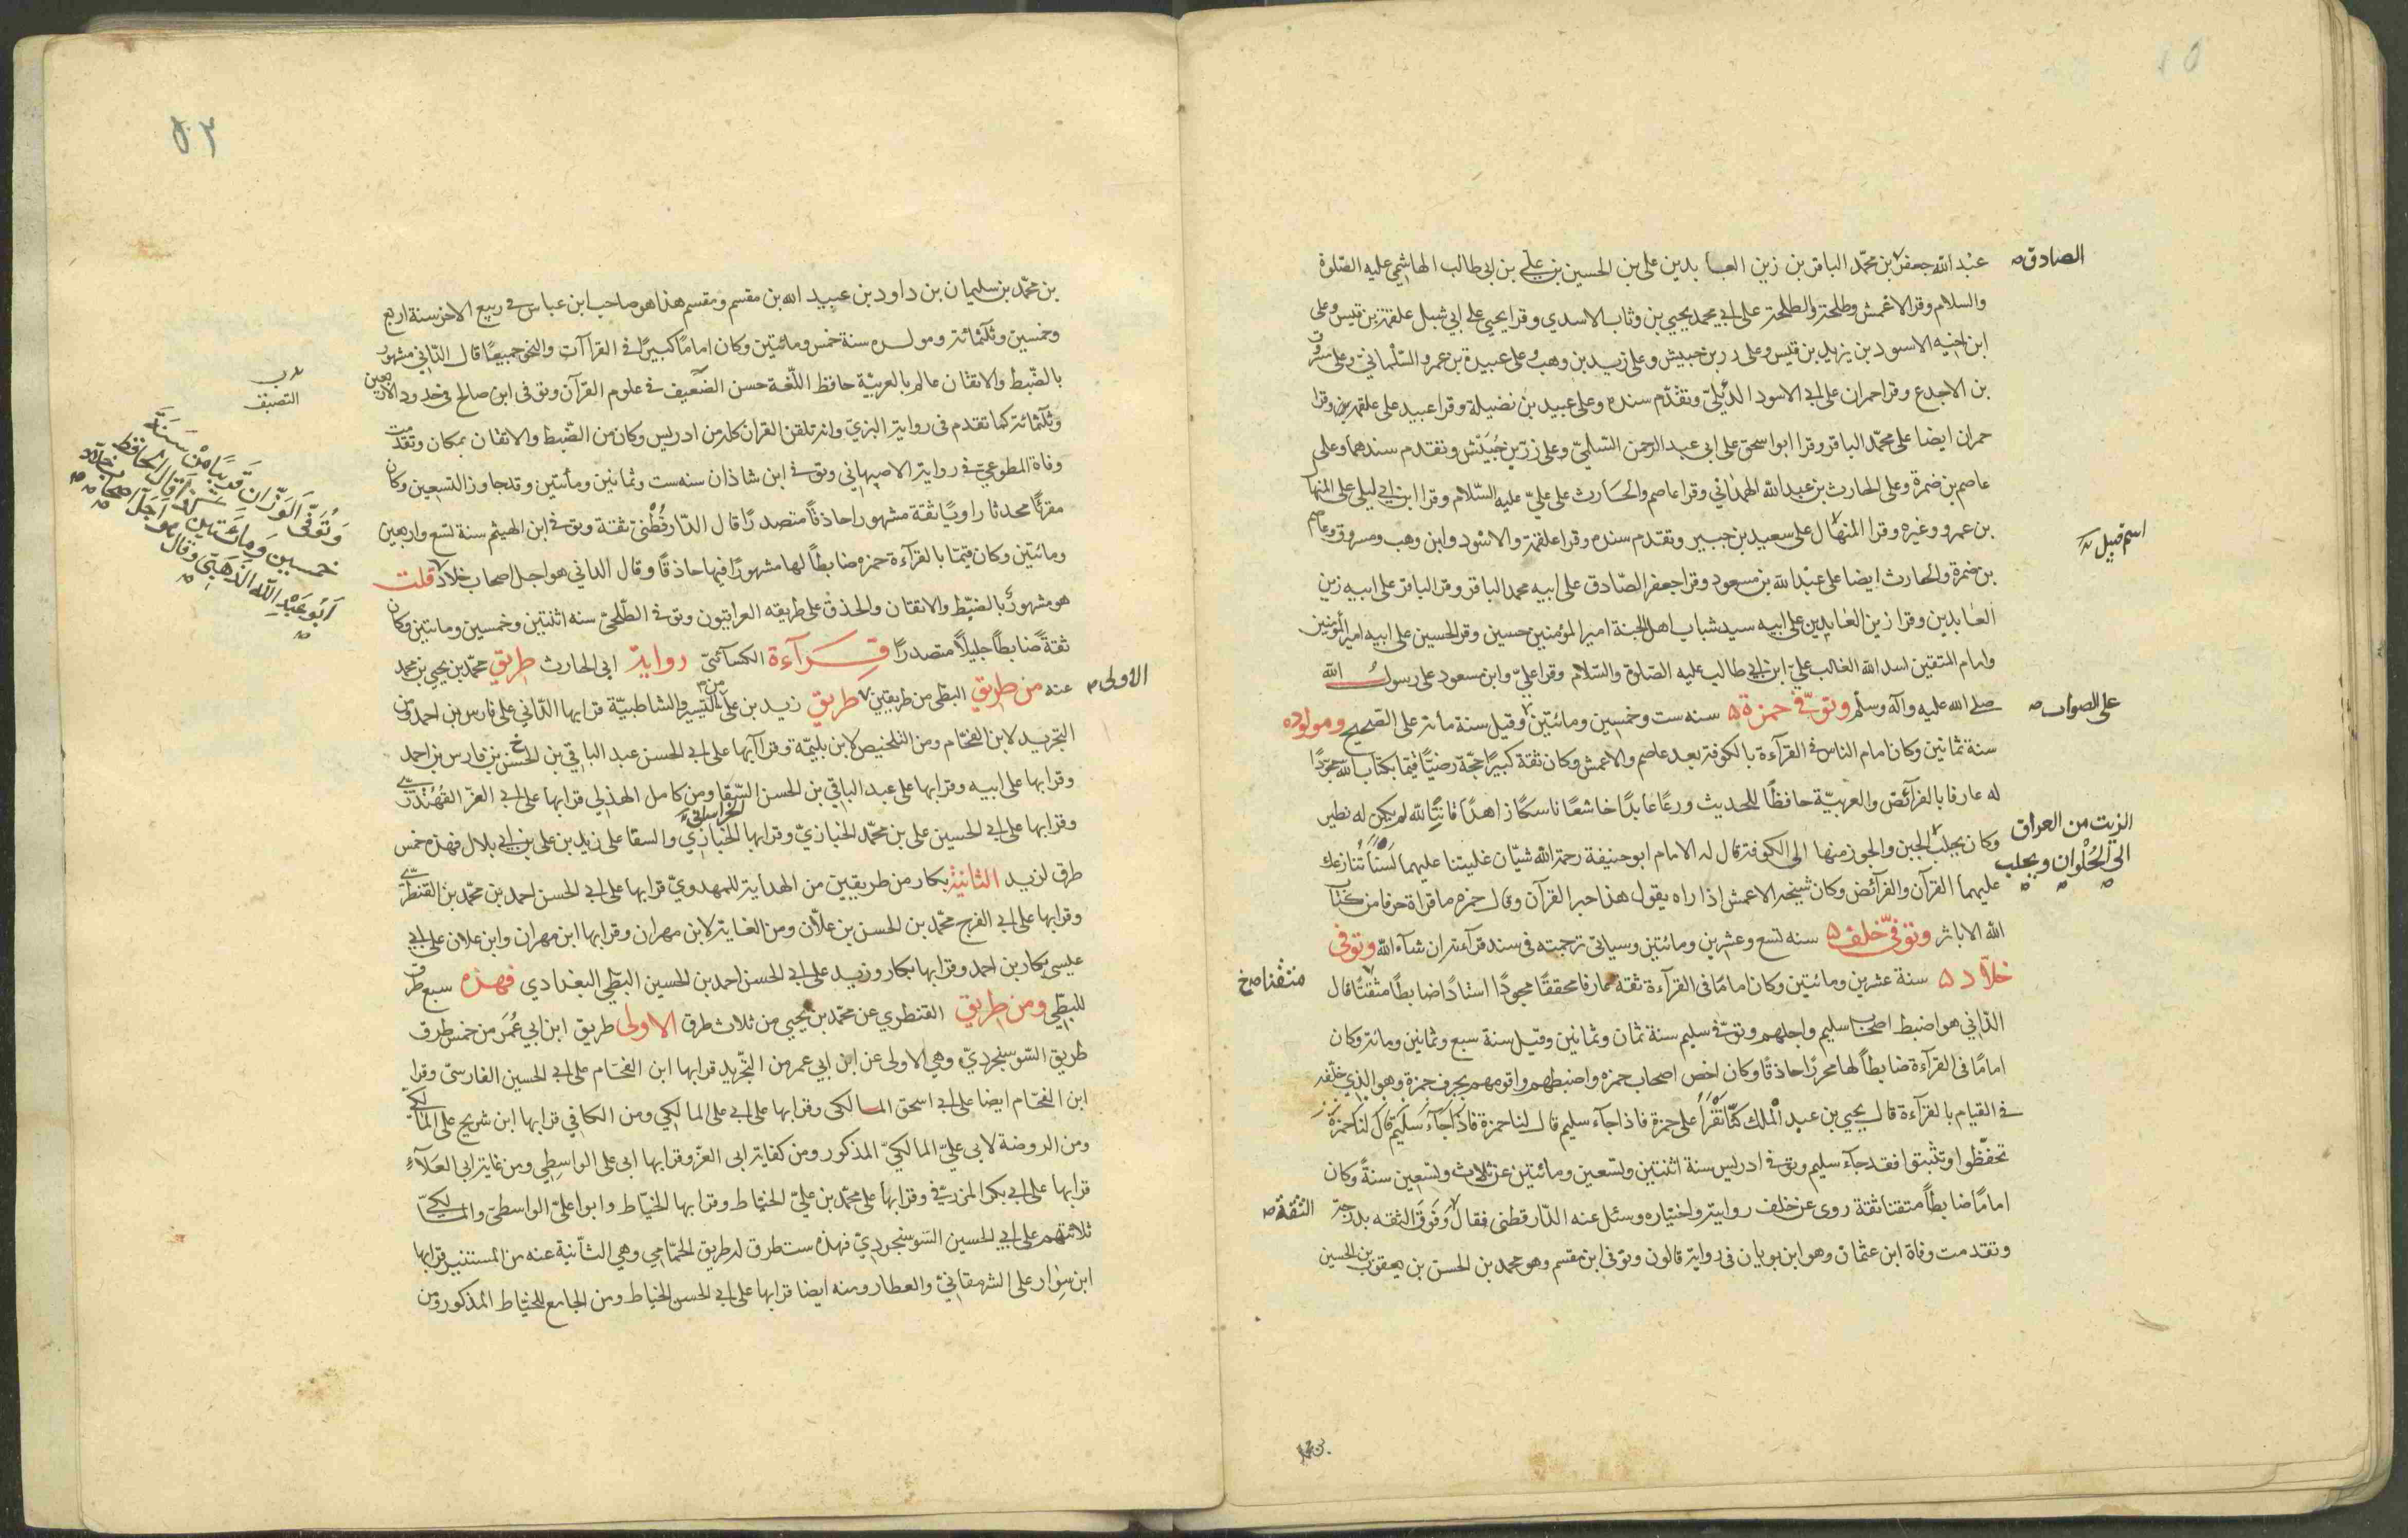 عبد الله جعفر بن محمد الباقر بن زين العابدين على بن الحسين بن علي بن ابى طالب الهاشمى عليه الصلوة
الصادق
والسلام وقرا الاعمش وطلحة والطلحة على ابي محمد يحيي بن وثاب الاسدي وقرا يحيي على ابي شبل علقمة بن قيس وعلى
ابن اخيه الاسود بن يزيد بن قيس وعلى زر بن حبيش وعلى زيد بن وهب وعلى عبيدة بن عمرو السلماني وعلى مسروق
بن الاجدع وقرا حمران على ابى الاسود الديلي وتقدم سنده وعلى عبيد بن نضيلة وقرا عبيد على علقمة وقرا
حمران ايضا على محمد الباقر وقرا ابو اسحق على ابى عبد الرحمن السلمي وعلى زر بن حبيش وتقدم سندهما وعلى
عاصم بن ضمرة وعلى الحارث بن عبد الله الهمداني وقرا عاصم والحارث على علي عليه السلام وقرا ابن ابى ليلى على المنهال
بن عمرو وغيره وقرا المنهال على سعيد بن جبير وتقدم سنده وقرا علقمة والاسود وابن وهب ومسروق وعاصم
بن ضمرة والحارث ايضا على عبد الله بن مسعود وقرا جعفر الصادق على ابيه محمد الباقر وقرا الباقر على ابيه زين
العابدين وقرا زين العابدين على ابيه سيد شباب اهل الجنة امير المؤمنين حسين وقرا الحسين على ابيه امير المؤمنين
وامام المتقين اسد الله الغالب علي ابن ابى طالب عليه الصلوة والسلام وقرا علي وابن مسعود على رسول الله
صلى الله عليه وآله وسلم وتوفى حمزة سنه ست وخمسين ومائتين وقيل سنة مأته على الصحيح ومولوده
على الصواب
سنة ثمانين وكان امام الناس فى القرآءة بالكوفة بعد عاصم والاعمش وكان ثقة كبيرا حجة رضيا قيما بكتاب الله مجودا
له عارفا بالفرائض والعربية حافظا للحديث ورعا عابدا خاشعا ناسكا زاهدا قانتا لله لم يكن له نظير
وكان يجلب الجبن والجوز منها الى الكوفة قال له الامام ابو حنيفة رحمة الله شيئان غلبتنا عليهما لسنا ننازعك
الزيت من العراق
الى الحلوان ويجلب
عليهما القرآن والفرائض وكان شيخه الاعمش اذا راه يقول هذا حبر القرآن وقال حمزه ما قراة حرفا من كتاب
الله الا باثر وتوفى خلف سنه تسع وعشرين ومائتين وسياتى ترجمته فى سند قرآءته ان شآء الله وتوفى
خلاد سنة عشرين ومائتين وكان اماما فى القرآءة ثقة عارفا محققا مجودا استادا ضابطا متقنا قال
الداني هو اضبط اصحاب سليم واجلهم وتوفى سليم سنة ثمان وثمانين وقيل سنة سبع وثمانين ومائة وكان
اماما فى القرآءة ضابطا لها محررا حاذقا وكان اخص اصحاب حمزه واضبطهم واقومهم بحرف حمزة وهو الذي خلفه
فى القيام بالقرآءة قال يحيي بن عبد الملك كنا نقرأ على حمزة فاذا جآء سليم قال لنا حمزة فاذا جآء سليم قال لنا حمزة
تحفظوا وتثبتوا فقد جآء سليم وتوفى ادريس سنة اثنتين وتسعين ومائتين عن ثلاث وتسعين سنة وكان
اماما ضابطا متقنا ثقة روى عن خلف روايته واختياره وسئل عنه الدارقطنى فقال وفوق الثقه بدرجة
الثقة
وتقدمت وفاة ابن عثمان وهو ابن بويان فى رواية قالون وتوفى ابن مقسم وهو محمد بن الحسن بن يعقوب بن الحسين
بن محمد
٥٢
بن محمد بن سليمان بن داود بن عبيد الله بن مقسم ومقسم هذا هو صاحب ابن عباس فى ربيع الاخر سنة اربع
وخمسين وثلثمائة ومولده سنة خمس ومائتين وكان اماما كبيرا فى القراآت والنحو جميعا قال الداني مشهور
بالضبط والاتقان عالم بالعربية حافظ اللغة حسن الضعيف فى علوم القرآن وتوفى ابن صالح فى حدود الاربعين
التصنيف
وثلثمائة كما تقدم فى رواية البزي وانه تلقن القران كله من ادريس وكان من الضبط والاتقان بمكان وتقدمت
وفاة المطوعي فى رواية الاصبهاني وتوفى ابن شاذان سنه ست وثمانين ومأتين وقد جاوز التسعين وكان
مقرئا محدثا راويا ثقة مشهورا حاذقا متصدرا قال الدارقطني ثقة وتوفى ابن الهيثم سنة تسع واربعين
ومائتين وكان قيما بالقرآءة حمزه ضابطا لها مشهورا فيها حاذقا وقال الداني هو اجل اصحاب خلاد قلت
وتوفى الوزان قريبا من سنة
خمسين ومائتين كذا قال الحافظ
ابو عبد الله الذهبى وقال هو اجل اصحاب خلاد
هو مشهور بالضبط والاتقان والحذق على طريقه العراقيون وتوفى الطلحي سنه اثنتين وخمسين ومائتين وكان
ثقة ضابطا جليلا متصدرا قرآءة الكسآئي رواية ابى الحارث طريق محمد بن يحيي بن محمد
عنه من طريق البطى من طريقين طريق زيد بن على من التيسير والشاطبية قرا بها الداني على فارس بن احمد ومن
الاولى
التجريد لابن الفحام ومن التلخيص لابن بليمة وقرآ بها على ابى الحسن عبد الباقي بن الحسن بن فارس بن احمد
وقرا بها على ابيه وقرا بها على عبد الباقي بن الحسن السقا ومن كامل الهذلي قرا بها على ابى العز القهندزى
وقرا بها على ابى الحسين على بن محمد الخبازي وقرا بها الخبازي والسقا على زيد بن على بن ابى بلال فهذه خمس
الخراسانى
طرق لزيد الثانية بكار من طريقين من الهداية للمهدوي قرا بها على ابى الحسن احمد بن محمد بن القنطرى
وقرا بها على ابى الفرج محمد بن الحسن بن علان ومن الغاية لابن مهران وقرا بها ابن مهران وابن علان على ابي
عيسى بكار بن احمد وقرا بها بكار وزيد على ابى الحسن احمد بن الحسين البطي البغدادي فهذه سبع طرق
للبطي ومن طريق القنطري عن محمد بن يحيي من ثلاث طرق الاولى طريق ابن ابي عمر من خمس طرق
طريق السوسنجردي وهي الاولى عن ابن ابي عمر من التجريد قرا بها ابن الفحام على ابى الحسين الفارسى وقرا
ابن الفحام ايضا على ابى اسحق المالكى وقرا بها على ابى على المالكي ومن الكافي قرا بها ابن شريح على المالكي
ومن الروضة لابي علي المالكي المذكور ومن كفاية ابى العز وقرا بها ابى على الواسطي ومن غاية ابى العلآء
قرا بها على ابى بكر المزرفى وقرا بها على محمد بن علي الخياط وقرا بها الخياط وابوا علي الواسطي والمالكي
ثلاثتهم على ابى الحسين السوسنجردي فهذه ست طرق له طريق الحمامي وهي الثانية عنه من المستنير قرا بها
ابن سوار على الشرمقاني والعطار ومنه ايضا قرا بها على ابى الحسن الخياط ومن الجامع للخياط المذكور ومن